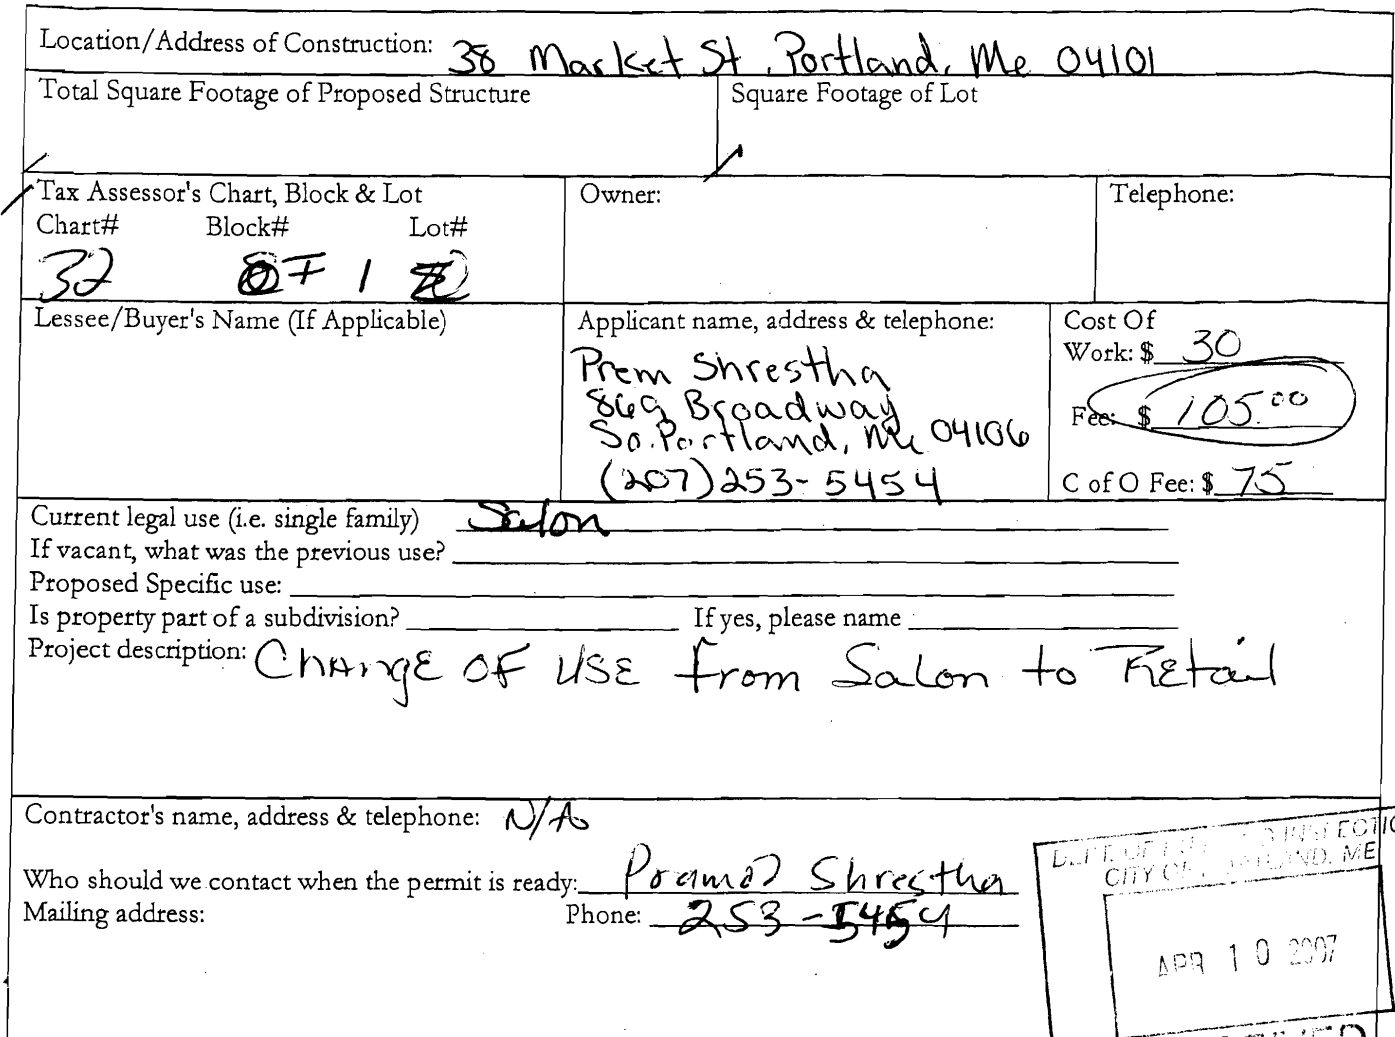 Location/Address of Construction: 38 Market St, Portland, Me 04101
Total Square Footage of Proposed Structure
Square Footage of Lot
Tax Assessor's Chart, Block & Lot
Chart# Block# Lot#
32 F 1
Owner:
Telephone:
Lessee/Buyer's Name (If Applicable)
Applicant name, address & telephone:
Prem Shrestha
869 Broadway
So. Portland, Me 04106
(207) 253-5454
Cost Of
Work: $ 30
Fee: $ 105.00
C of O Fee: $ 75
Current legal use (i.e. single family) Salon
If vacant, what was the previous use?
Proposed Specific use:
Is property part of a subdivision? If yes, please name
Project description: Change OF USE from Salon to Retail
Contractor's name, address & telephone: N/A
Who should we contact when the permit is ready: Shrestha
Mailing address: Phone: 253-5454
DEPT. OF
CITY OF PORTLAND, ME
APR 10 2007